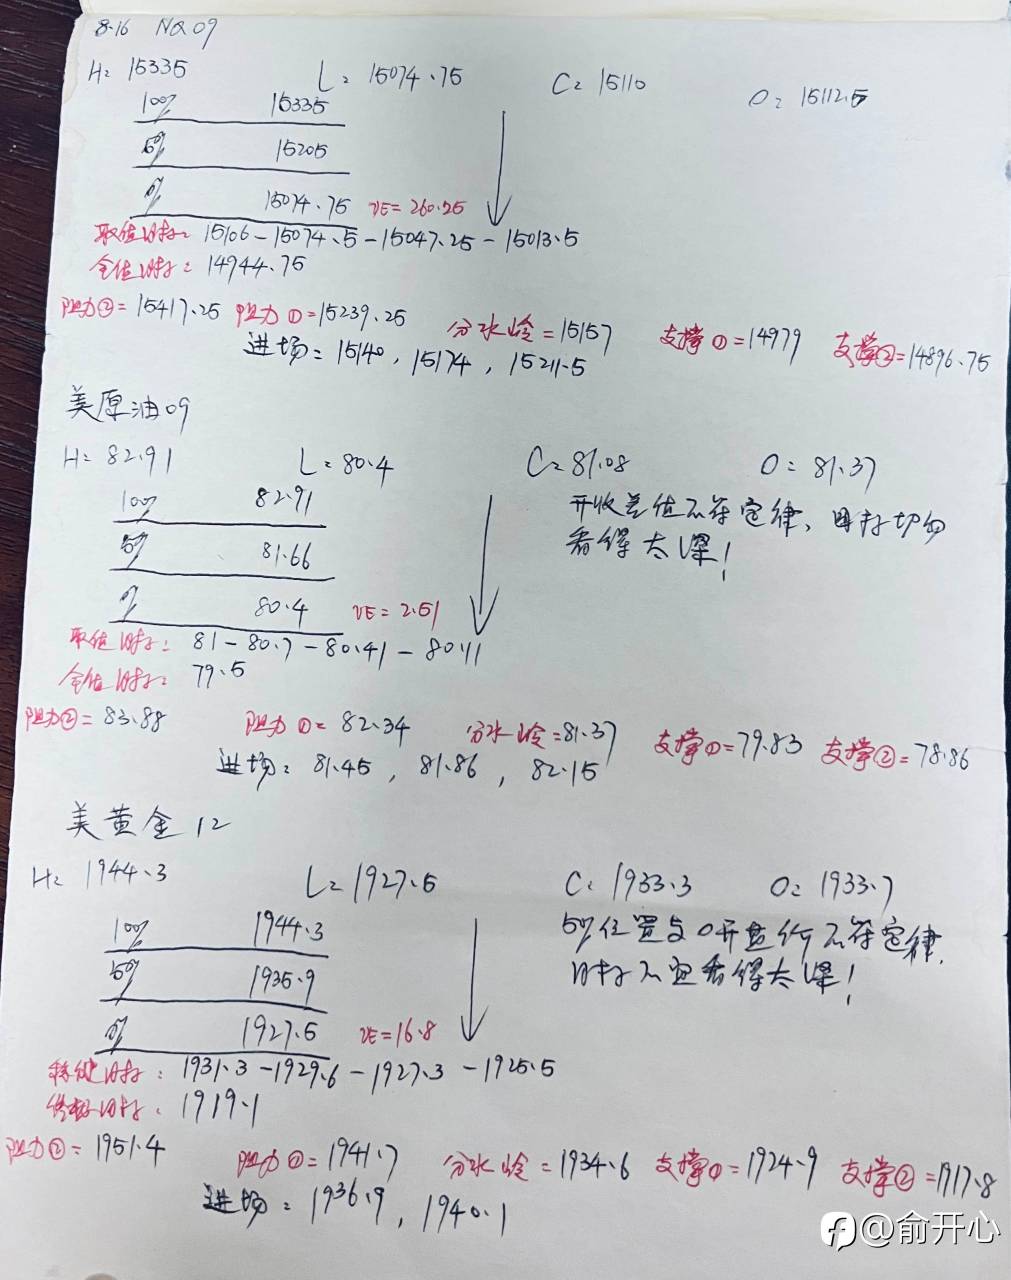 8.16 NQ09
H= 15335 L= 15074.75 C= 15110 O= 15112.5
100% 15335
50% 15205
0% 15074.75 VE=260.25
取值目标: 15106-15074.5-15047.25-15013.5
全值目标: 14944.75
阻力②=15417.25 阻力①=15239.25 分水岭=15157 支撑①=14979 支撑②=14896.75
进场: 15140, 15174, 15211.5
美原油09
H= 82.91 L=80.4 C=81.08 O=81.37
100% 82.91
50% 81.66
0% 80.4 VE=2.51
开收差值不符定律,目标切勿
看得太深!
取值目标: 81-80.7-80.41-80.11
全值目标: 79.5
阻力②=83.88 阻力①=82.34 分水岭=81.37 支撑①=79.83 支撑②=78.86
进场: 81.45, 81.86, 82.15
美黄金12
H= 1944.3 L=1927.5 C= 1933.3 O= 1933.7
100% 1944.3
50% 1935.9
0% 1927.5 VE=16.8
50%位置与O开盘价不符定律,
目标不宜看得太深!
稳健目标: 1931.3-1929.6-1927.3-1925.5
终极目标: 1919.1
阻力②=1951.4 阻力①=1941.7 分水岭=1934.6 支撑①=1924.9 支撑②=1917.8
进场: 1936.9, 1940.1
@俞开心